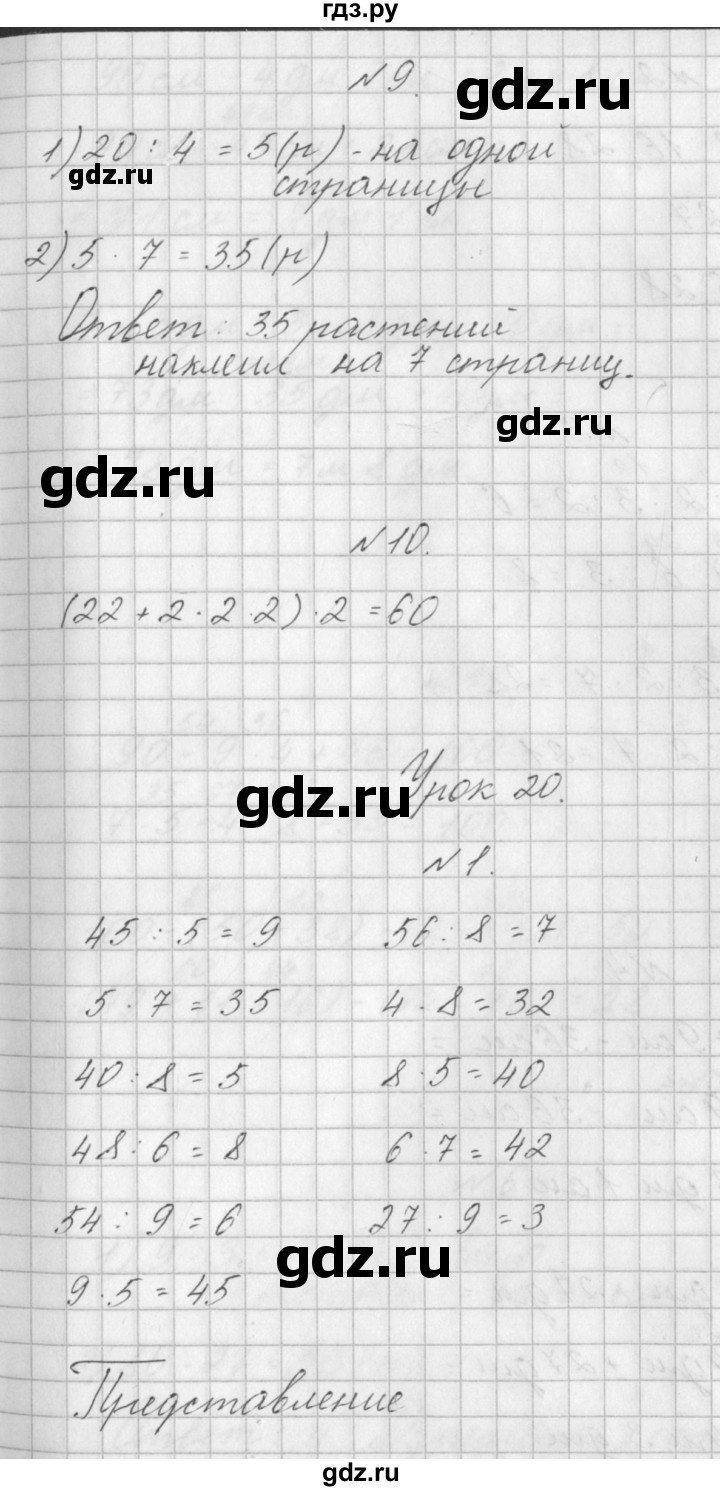 гдз.ру
№9.
gdz.ru
1) 20 : 4 = 5 (р) - на одной
gdz.ru
страницы
2) 5 · 7 = 35 (р)
Ответ: 35 растений
наклеил на 7 страниц.
gdz.ru
gdz.ru
№10.
(22 + 2 · 2 · 2) · 2 = 60
gdz.ru
Урок 20.
№1.
45 : 5 = 9 56 : 8 = 7
5 · 7 = 35 4 · 8 = 32
40 : 8 = 5 8 · 5 = 40
48 : 6 = 8 6 · 7 = 42
54 : 9 = 6 27 : 9 = 3
gdz.ru
9 · 5 = 45
Представление
gdz.ru